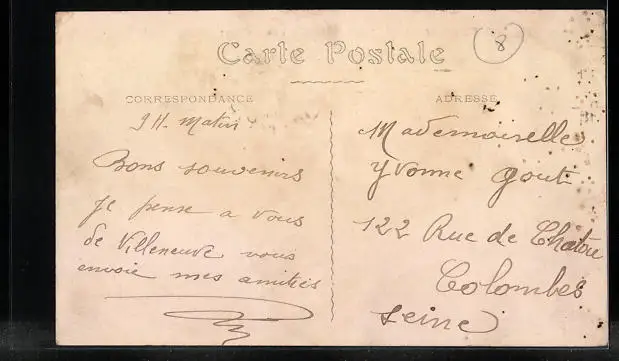 Carte Postale
8
CORRESPONDANCE
9 H. Matin
Bons souvenirs
Je pense a vous
de Villeneuve vous
envoie mes amitiés
ADRESSE
Mademoiselle
Yvonne Gout
122 Rue de Chatou
Colombes
Seine